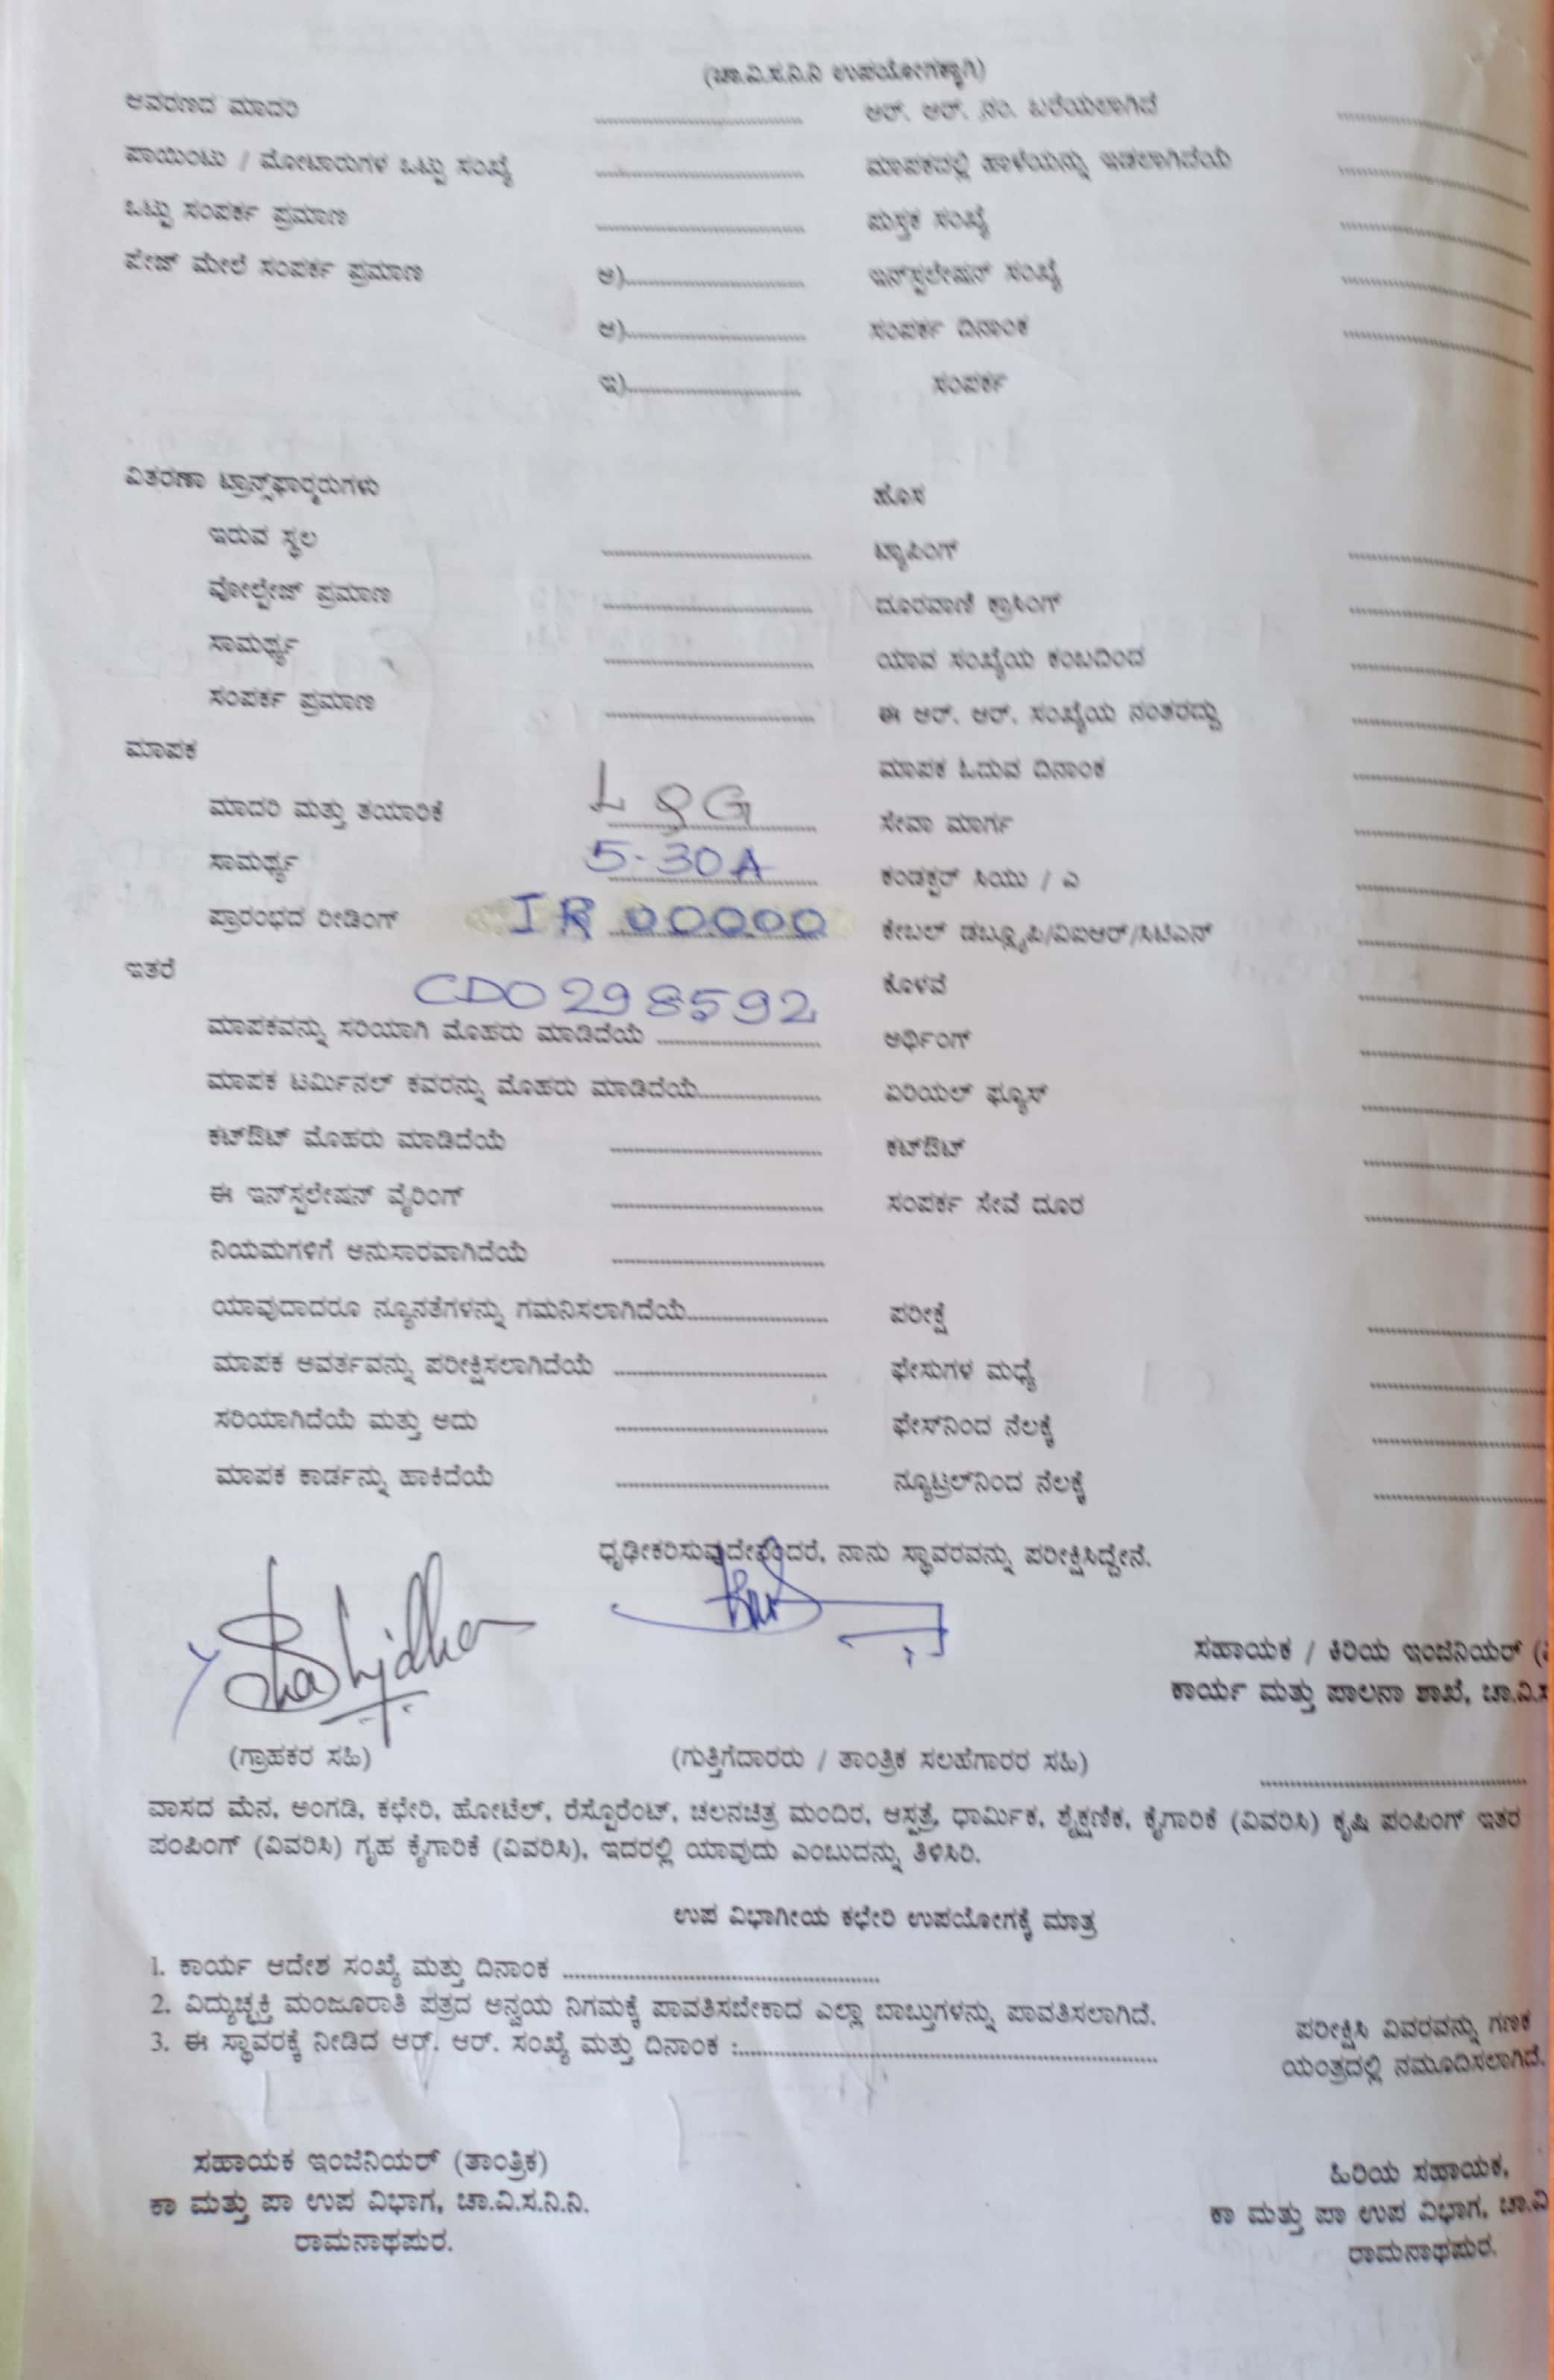 (ಚಾ.ವಿ.ಸ.ನಿ.ನಿ ಉಪಯೋಗಕ್ಕಾಗಿ)
ಆವರಣದ ಮಾದರಿ .............................. ಆರ್. ಆರ್. ನಂ. ಬರೆಯಲಾಗಿದೆ ..............................
ಪಾಯಿಂಟು / ಮೋಟಾರುಗಳ ಒಟ್ಟು ಸಂಖ್ಯೆ .............................. ಮಾಪಕದಲ್ಲಿ ಹಾಳೆಯನ್ನು ಇಡಲಾಗಿದೆಯೆ ..............................
ಒಟ್ಟು ಸಂಪರ್ಕ ಪ್ರಮಾಣ .............................. ಪುಸ್ತಕ ಸಂಖ್ಯೆ ..............................
ಪೇಜ್ ಮೇಲೆ ಸಂಪರ್ಕ ಪ್ರಮಾಣ ಅ).............................. ಇನ್‌ಸ್ಟಲೇಷನ್ ಸಂಖ್ಯೆ ..............................
ಆ).............................. ಸಂಪರ್ಕ ದಿನಾಂಕ ..............................
ಇ).............................. ಸಂಪರ್ಕ
ವಿತರಣಾ ಟ್ರಾನ್ಸ್‌ಫಾರ್‍ಮರುಗಳು ಹೊಸ
ಇರುವ ಸ್ಥಲ .............................. ಟ್ಯಾಪಿಂಗ್ ..............................
ವೋಲ್ಟೇಜ್ ಪ್ರಮಾಣ .............................. ದೂರವಾಣಿ ಕ್ರಾಸಿಂಗ್ ..............................
ಸಾಮರ್ಥ್ಯ .............................. ಯಾವ ಸಂಖ್ಯೆಯ ಕಂಬದಿಂದ ..............................
ಸಂಪರ್ಕ ಪ್ರಮಾಣ .............................. ಈ ಆರ್. ಆರ್. ಸಂಖ್ಯೆಯ ನಂತರದ್ದು ..............................
ಮಾಪಕ ಮಾಪಕ ಓದುವ ದಿನಾಂಕ ..............................
ಮಾದರಿ ಮತ್ತು ತಯಾರಿಕೆ L&G ಸೇವಾ ಮಾರ್ಗ ..............................
ಸಾಮರ್ಥ್ಯ 5-30A ಕಂಡಕ್ಟರ್ ಸಿಯು / ಎ ..............................
ಪ್ರಾರಂಭದ ರೀಡಿಂಗ್ IR 00000 ಕೇಬಲ್ ಡಬ್ಲ್ಯೂಪಿ/ವಿಐಆರ್/ಸಿಟಿಎಸ್ ..............................
ಇತರೆ CD0298592 ಕೊಳವೆ ..............................
ಮಾಪಕವನ್ನು ಸರಿಯಾಗಿ ಮೊಹರು ಮಾಡಿದೆಯೆ .............................. ಅರ್ಥಿಂಗ್ ..............................
ಮಾಪಕ ಟರ್ಮಿನಲ್ ಕವರನ್ನು ಮೊಹರು ಮಾಡಿದೆಯೆ.................... ಏರಿಯಲ್ ಫ್ಯೂಸ್ ..............................
ಕಟ್‌ಔಟ್ ಮೊಹರು ಮಾಡಿದೆಯೆ .............................. ಕಟ್‌ಔಟ್ ..............................
ಈ ಇನ್‌ಸ್ಟಲೇಷನ್ ವೈರಿಂಗ್ .............................. ಸಂಪರ್ಕ ಸೇವೆ ದೂರ ..............................
ನಿಯಮಗಳಿಗೆ ಅನುಸಾರವಾಗಿದೆಯೆ ..............................
ಯಾವುದಾದರೂ ನ್ಯೂನತೆಗಳನ್ನು ಗಮನಿಸಲಾಗಿದೆಯೆ.................... ಪರೀಕ್ಷೆ ..............................
ಮಾಪಕ ಆವರ್ತವನ್ನು ಪರೀಕ್ಷಿಸಲಾಗಿದೆಯೆ .............................. ಫೇಸುಗಳ ಮಧ್ಯೆ ..............................
ಸರಿಯಾಗಿದೆಯೆ ಮತ್ತು ಅದು .............................. ಫೇಸ್‌ನಿಂದ ನೆಲಕ್ಕೆ ..............................
ಮಾಪಕ ಕಾರ್ಡನ್ನು ಹಾಕಿದೆಯೆ .............................. ನ್ಯೂಟ್ರಲ್‌ನಿಂದ ನೆಲಕ್ಕೆ ..............................
ಧೃಢೀಕರಿಸುವುದೇನೆಂದರೆ, ನಾನು ಸ್ಥಾವರವನ್ನು ಪರೀಕ್ಷಿಸಿದ್ದೇನೆ.
Shashidhar
ಸಹಾಯಕ / ಕಿರಿಯ ಇಂಜಿನಿಯರ್
ಕಾರ್ಯ ಮತ್ತು ಪಾಲನಾ ಶಾಖೆ, ಚಾ.ವಿ.ಸ
(ಗ್ರಾಹಕರ ಸಹಿ) (ಗುತ್ತಿಗೆದಾರರು / ತಾಂತ್ರಿಕ ಸಲಹೆಗಾರರ ಸಹಿ) ..............................
ವಾಸದ ಮನೆ, ಅಂಗಡಿ, ಕಛೇರಿ, ಹೋಟೆಲ್, ರೆಸ್ಟೊರೆಂಟ್, ಚಲನಚಿತ್ರ ಮಂದಿರ, ಆಸ್ಪತ್ರೆ, ಧಾರ್ಮಿಕ, ಶೈಕ್ಷಣಿಕ, ಕೈಗಾರಿಕೆ (ವಿವರಿಸಿ) ಕೃಷಿ ಪಂಪಿಂಗ್ ಇತರ
ಪಂಪಿಂಗ್ (ವಿವರಿಸಿ) ಗೃಹ ಕೈಗಾರಿಕೆ (ವಿವರಿಸಿ), ಇದರಲ್ಲಿ ಯಾವುದು ಎಂಬುದನ್ನು ತಿಳಿಸಿರಿ.
ಉಪ ವಿಭಾಗೀಯ ಕಛೇರಿ ಉಪಯೋಗಕ್ಕೆ ಮಾತ್ರ
1. ಕಾರ್ಯ ಆದೇಶ ಸಂಖ್ಯೆ ಮತ್ತು ದಿನಾಂಕ ..............................
2. ವಿದ್ಯುಚ್ಛಕ್ತಿ ಮಂಜೂರಾತಿ ಪತ್ರದ ಅನ್ವಯ ನಿಗಮಕ್ಕೆ ಪಾವತಿಸಬೇಕಾದ ಎಲ್ಲಾ ಬಾಬ್ತುಗಳನ್ನು ಪಾವತಿಸಲಾಗಿದೆ.
3. ಈ ಸ್ಥಾವರಕ್ಕೆ ನೀಡಿದ ಆರ್. ಆರ್. ಸಂಖ್ಯೆ ಮತ್ತು ದಿನಾಂಕ :..............................
ಪರೀಕ್ಷಿಸಿ ವಿವರವನ್ನು ಗಣಕ
ಯಂತ್ರದಲ್ಲಿ ನಮೂದಿಸಲಾಗಿದೆ.
ಸಹಾಯಕ ಇಂಜಿನಿಯರ್ (ತಾಂತ್ರಿಕ)
ಕಾ ಮತ್ತು ಪಾ ಉಪ ವಿಭಾಗ, ಚಾ.ವಿ.ಸ.ನಿ.ನಿ.
ರಾಮನಾಥಪುರ.
ಹಿರಿಯ ಸಹಾಯಕ,
ಕಾ ಮತ್ತು ಪಾ ಉಪ ವಿಭಾಗ, ಚಾ.ವಿ
ರಾಮನಾಥಪುರ.